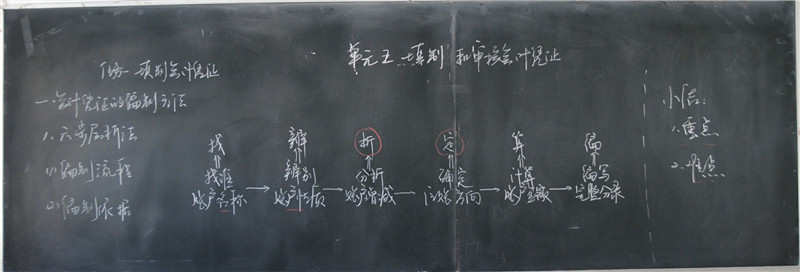 单元五 填制和审核会计凭证
任务一 填制会计凭证
一.会计凭证的编制方法
1.六步层析法
(1)编制流程
(2)编制依据
找 辨 析 定 算 编
找准 辨别 分析 确定 计算 编写
账户名称 账户性质 账户增减 记账方向 账户金额 完整分录
小结:
1.重点
2.难点